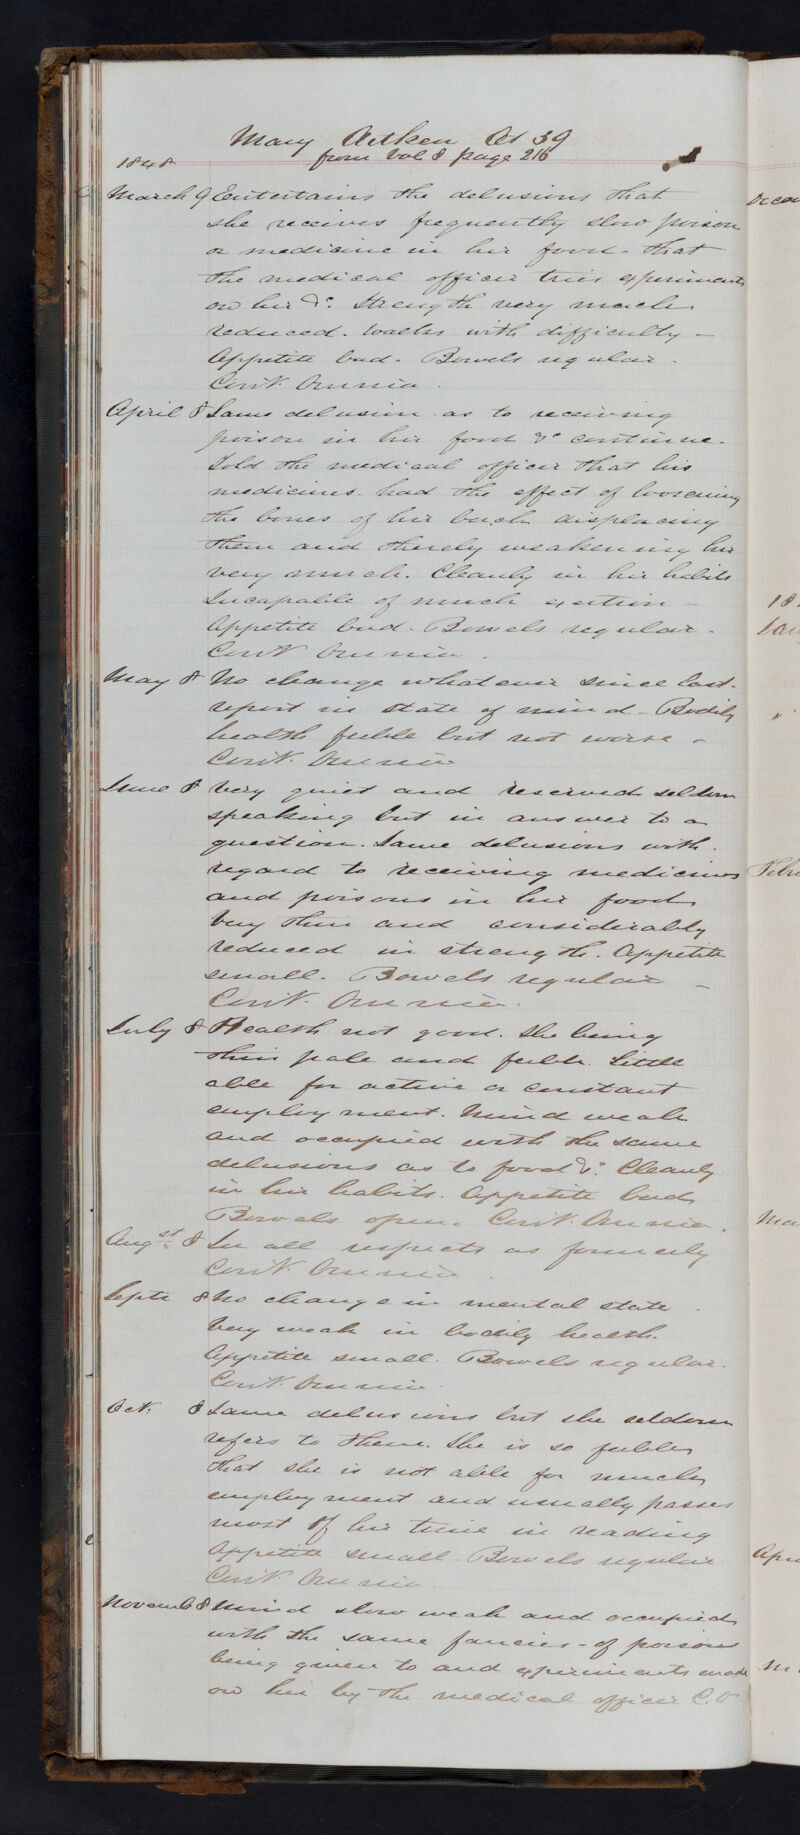 Mary Aitken Æt 39
from Vol 8 page 216
1848
March 9 Entertains the delusions that
she receives frequently slow poison
or medicine in her food - that
the medical officer tries experiments
on her &c. Strength very much
reduced. Walks with difficulty -
Appetite bad. Bowels regular.
Cont. Omnia.
April 8 Same delusion as to receiving
poison in her food &c continue.
Told the medical officer that his
medicines had the effect of loosening
the bones of her back displacing
them and thereby weakening her
very much. Cleanly in her habits
Incapable of much exertion -
Appetite bad. Bowels regular.
Cont Omnia.
May 8 No change whatever since last
report in state of mind - Bodily
health feeble but not worse -
Cont. Omnia
June 8 Very quiet and reserved seldom
speaking but in answer to a
question. Same delusions with
regard to receiving medicines
and poisons in her food
Very thin and considerably
reduced in strength. Appetite
small. Bowels regular -
Cont. Omnia.
July 8 Health not good. She being
thin pale and feeble. Little
able for active or constant
employment. Mind weak
and occupied with the same
delusions as to food &c. Cleanly
in her habits. Appetite bad
Bowels open. Cont. Omnia.
Augst. 8 In all respects as formerly
Cont. Omnia.
Septr 8 No change in mental state.
Very weak in bodily health.
Appetite small. Bowels regular.
Cont. Omnia
Oct. 8 Same delusions but she seldom
refers to them. She is so feeble
that she is not able for much
employment and usually passes
most of her time in reading
Appetite small. Bowels regular
Cont. Omnia.
Novemb 8 Mind slow weak and occupied
with the same fancies - of poisons
being given to and experiments made
on her by the medical officer C.O